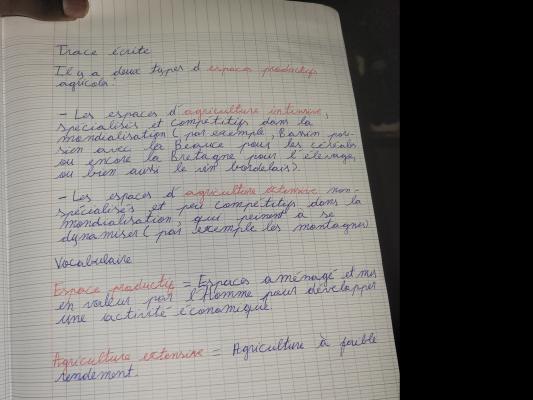 Trace écrite
Il y a deux types d'espaces productifs
agricole.
- Les espaces d'agriculture intensive,
spécialisés et compétitifs dans la
mondialisation (par exemple, Bassin pari-
sien avec la Beauce pour les céréales
ou encore la Bretagne pour l'élevage,
ou bien aussi le vin bordelais).
- Les espaces d'agriculture extensive non-
spécialisés et peu compétitifs dans la
mondialisation qui peinent à se
dynamiser (par exemple les montagnes)
Vocabulaire
Espace productif = Espaces aménagé et mis
en valeur par l'Homme pour développer
une activité économique.
Agriculture extensive = Agriculture à faible
rendement.